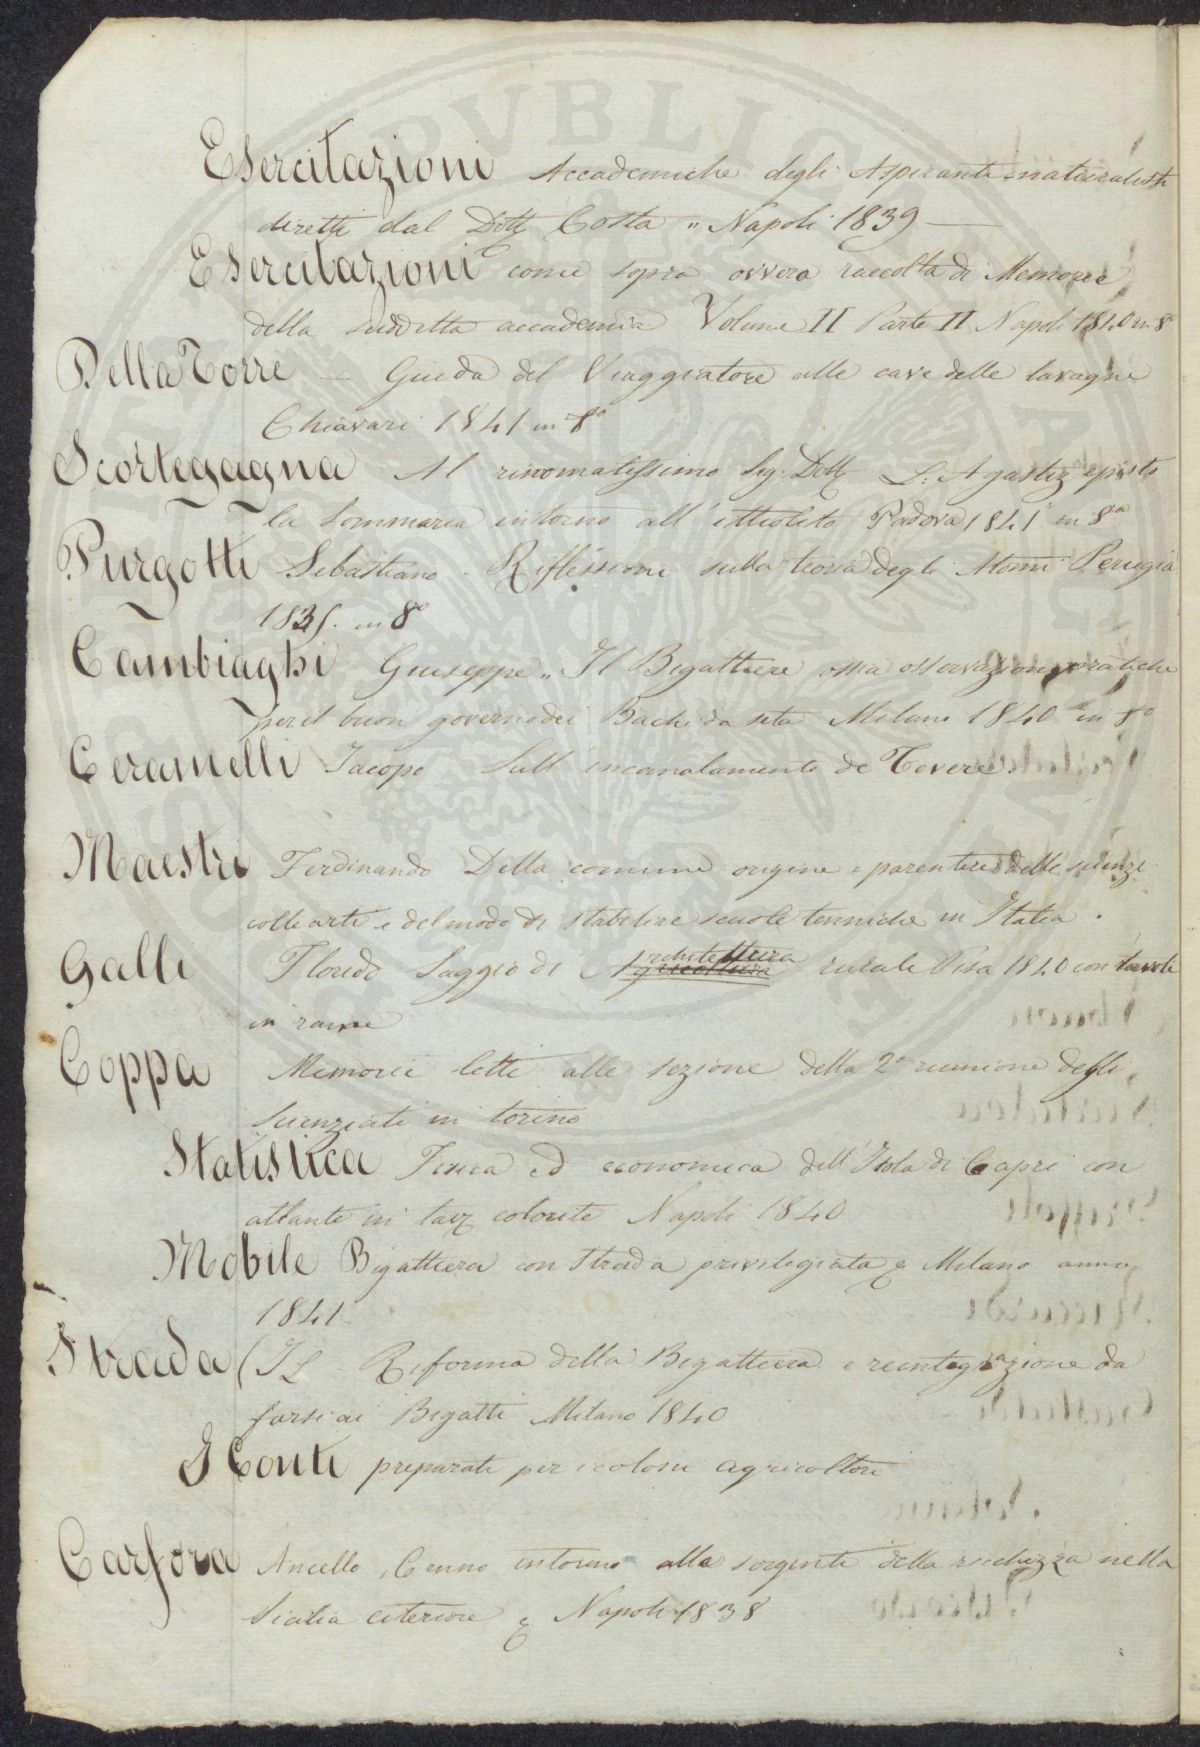 Esercitazioni Accademiche degli Aspiranti naturalisti
diretti dal Dott Costa „ Napoli 1839 —
Esercitazioni come sopra ovvero raccolta di Memorie
della suddetta accademia Volume II Parte II Napoli 1840 in 8°
Della Torre — Guida del Viaggiatore alle cave delle lavagne
Chiavari 1841 in 8°
Scortegagna Al rinomatissimo Sig. Dott L. Agassiz episto
la Sommaria intorno all' ittiolito Padova 1841 in 8°
Purgotti Sebastiano. Riflessioni sulla teoria degli Atomi Perugia
in 8°
Cambiaghi Giuseppe „ Il Bigattiere ossia osservazioni pratiche
per il buon governo dei Bachi da seta Milano 1840 in 8°
Ceramelli Jacopo Sull' incanalamento de Tevere.
Maestri Ferdinando Della comune origine e parentire delle scienze
colle arti e del modo di stabilire scuole tenniche in Italia.
Galli Floredo Saggio di Architettura rurale Pisa 1840 con tavole
in rame
Coppa Memorie lette alle sezione della 2ª riunione degli
Scienziati in torino
Statistica Fisica ed economica dell' Isola di Capri con
atlante in tav colorite Napoli 1840
Mobile Bigattiera con Strada privilegiata Milano anno
1841
Strada (IL Riforma della Bigattiera e reintegrazione da
farsi ai Bigatti Milano 1840
I Conti preparati per i coloni agricoltori
Carfora Aniello, Cenno intorno alle sorgenti della ricchezza nella
Sicilia citeriore Napoli 1838